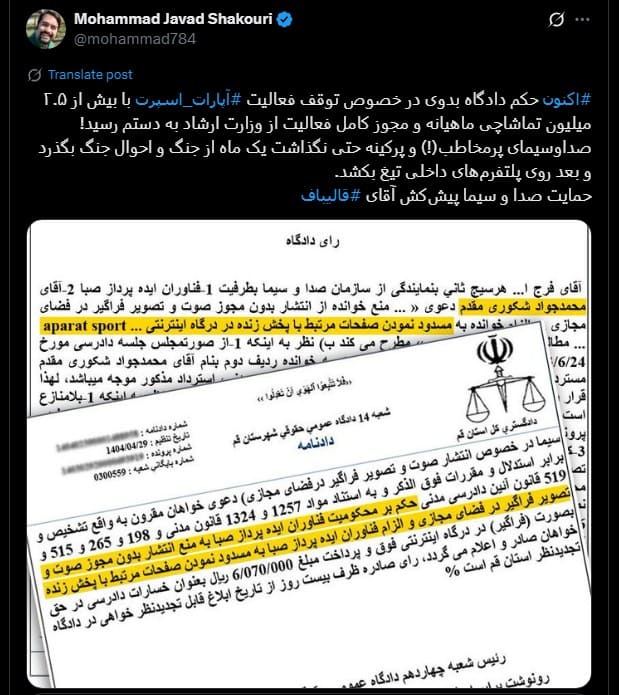 Mohammad Javad Shakouri
@mohammad784
Translate post
#اکنون حکم دادگاه بدوی در خصوص توقف فعالیت #آپارات_اسپرت با بیش از ۲.۵
میلیون تماشاچی ماهیانه و مجوز کامل فعالیت از وزارت ارشاد به دستم رسید!
صداوسیمای پرمخاطب(!) و پرکینه حتی نگذاشت یک ماه از جنگ و احوال جنگ بگذرد
و بعد روی پلتفرم‌های داخلی تیغ بکشد.
حمایت صدا و سیما پیش‌کش آقای #قالیباف
رای دادگاه
آقای فرج ا... هرسیج ثاني بنمایندگی از سازمان صدا و سیما بطرفیت 1-فناوران ایده پرداز صبا 2-آقای
محمدجواد شکوری مقدم دعوی « ... منع خوانده از انتشار بدون مجوز صوت و تصویر فراگیر در فضای
مجازی خوانده به مسدود نمودن صفحات مرتبط با پخش زنده در درگاه اینترنتی ... aparat sport
... مطرح می کند ب) نظر به اینکه 1-از صورتمجلس جلسه دادرسی مورخ
6/24/ خوانده ردیف دوم بنام آقای محمدجواد شکوری مقدم
مسترد استرداد مذکور موجه میباشد، لهذا
قرار اینکه 1-بلامنازع
است
«فَلا تَتَّبِعُوا الْهَوى أَنْ تَعْدِلُوا»
دادگستري کل استان قم
شعبه 14 دادگاه عمومي حقوقي شهرستان قم
دادنامه
شماره دادنامه :
تاریخ تنظیم : 1404/04/29
شماره پرونده :
شماره بایگاني شعبه : 0300559
سیما در خصوص انتشار صوت و تصویر فراگیر درفضای مجازی) دعوی خواهان مقرون به واقع تشخیص و
برابر استدلال و مقررات فوق الذکر و به استناد مواد 1257 و 1324 قانون مدنی و 198 و 265 و 515 و
519 قانون آئین دادرسی مدنی حکم بر محکومیت فناوران ایده پرداز صبا به منع انتشار بدون مجوز صوت و
تصویر فراگیر در فضای مجازی و الزام فناوران ایده پرداز صبا به مسدود نمودن صفحات مرتبط با پخش زنده
بصورت (فراگیر) در درگاه اینترنتی فوق و پرداخت مبلغ 6/070/000 ریال بعنوان خسارات دادرسی در حق
خواهان صادر و اعلام می گردد، رای صادره ظرف بیست روز از تاریخ ابلاغ قابل تجدیدنظر خواهی در دادگاه
تجدیدنظر استان قم است %
رئیس شعبه چهاردهم دادگاه عمومی
رونوشت برابر